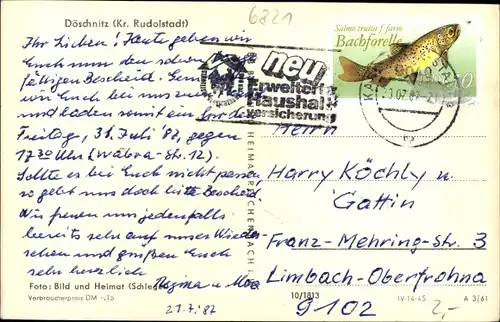 6821
Döschnitz (Kr. Rudolstadt)
Salmo trutta f. fario
Bachforelle
Ihr Lieben! Heute geben wir
Euch nun den schon
fälligen Bescheid.
wir Euch bei uns
und laden somit ein für den
Freitag, 31. Juli 87, gegen
17³⁰ Uhr (Str. 12).
Sollte es bei Euch nicht passen,
so gebt uns doch bitte Bescheid.
Wir freuen uns jedenfalls
bereits sehr auf unser Wieder-
sehen und grüßen Euch
sehr herzlich
Regina u.
21.7.87
neu
Erweiterte
Haushalt-
versicherung
Herrn
Harry Köchly u.
Gattin
Franz-Mehring-Str. 3
Limbach-Oberfrohna
9102
Foto: Bild und Heimat
Verbraucherpreis DM -,15
10/1813
IV-14-45
A 3/61
2,-